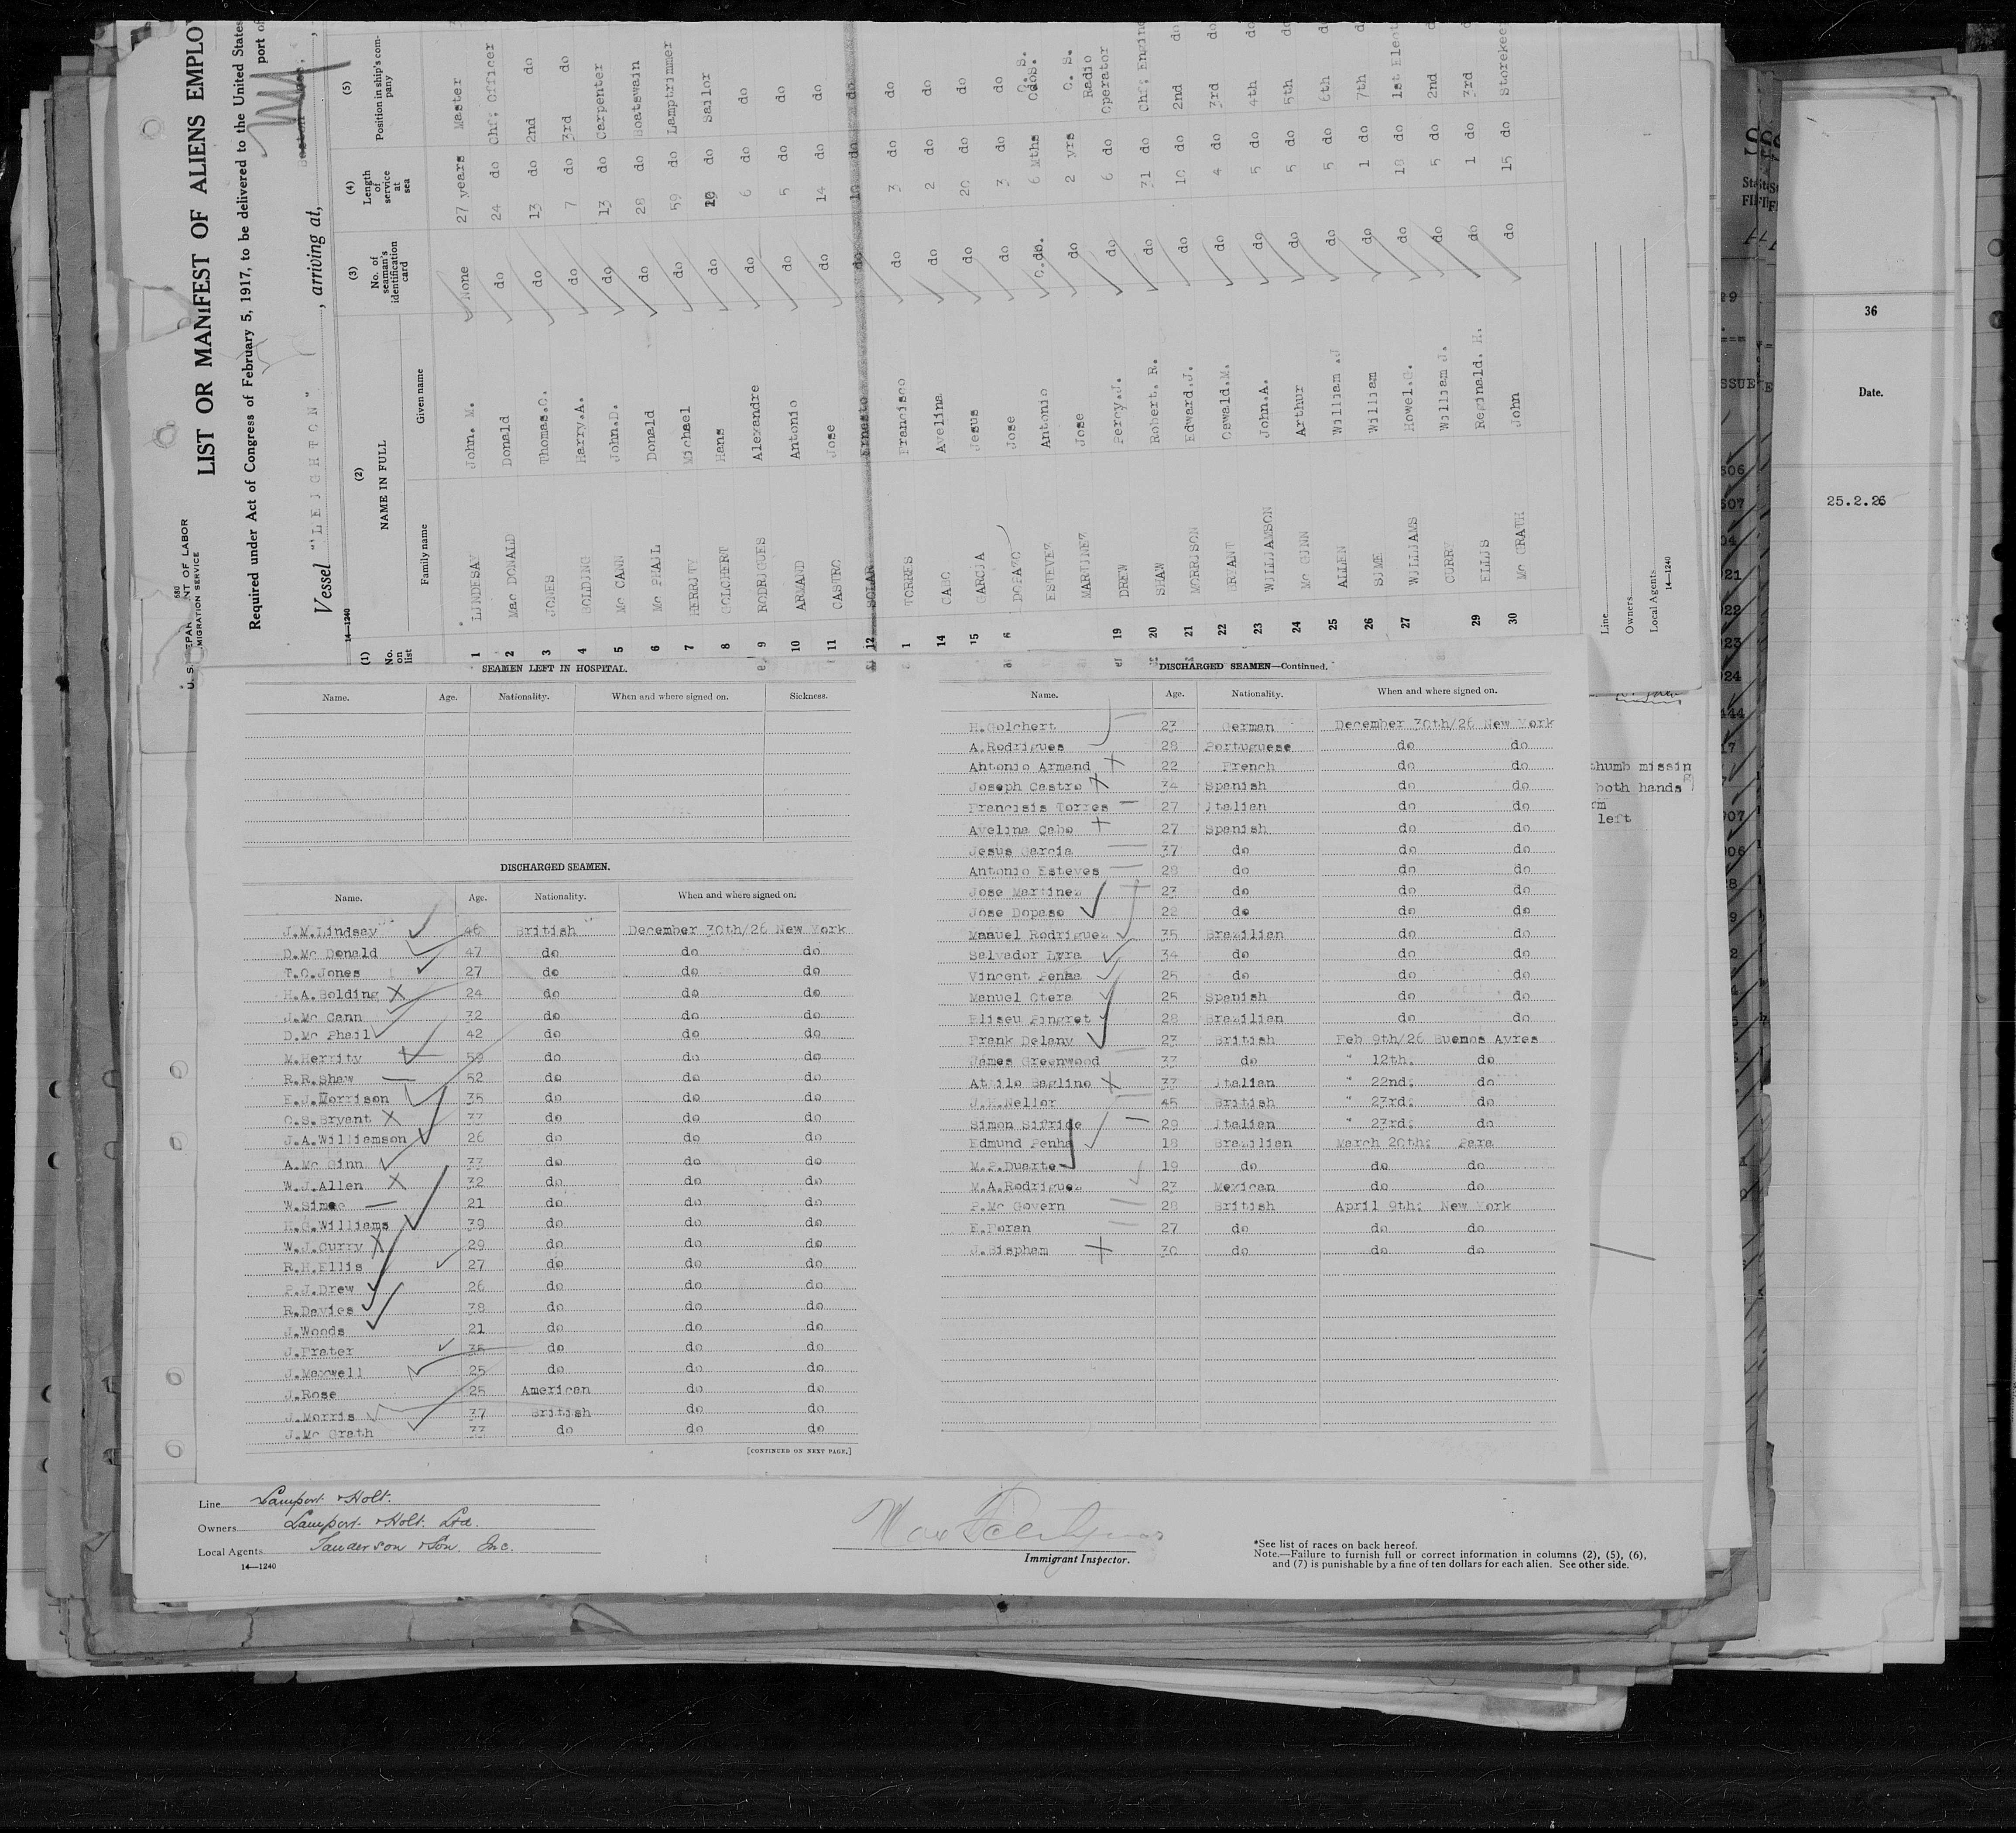 U. S. DEPAR NT OF LABOR
MIGRATION SERVICE
LIST OR MANIFEST OF ALIENS EMPLO
Required under Act of Congress of February 5, 1917, to be delivered to the United States
port of
Vessel "LEIGHTON", arriving at,
14—1240
(1) No. on list (2) NAME IN FULL Family name Given name (3) No. of seaman's identification card (4) Length of service at sea (5) Position in ship's company
1 LINDSAY John. M. None 27 years Master
2 Mac DONALD Donald do 24 do Chf; Officer
3 JONES Thomas.O. do 13 do 2nd do
4 BOLDING Harry.A. do 7 do 3rd do
5 Mc CANN John.D. do 13 do Carpenter
6 Mc PHAIL Donald do 28 do Boatswain
7 HERRITY Michael do 59 do Lamptrimmer
8 GOLCHERT Hans do 10 do Sailor
9 RODRIGUES Alexandre do 6 do do
10 ARMAND Antonio do 5 do do
11 CASTRO Jose do 14 do do
12 SOLAR Ernesto do 10 do do
1 TORRES Francisco do 3 do do
14 CABO Avelina do 2 do do
15 GARCIA Jesus do 20 do do
6 DOPAZO Jose do 3 do do
ESTEVEZ Antonio do. 6 Mths C. S.
MARTINEZ Jose do 2 yrs C. S.
19 DREW Percy.J. do 6 do Radio Operator
20 SHAW Robert. R. do 31 do Chf; Engin
21 MORRISON Edward.J. do 10 do 2nd do
22 BRYANT Oswald.M. do 4 do 3rd do
23 WILLIAMSON John.A. do 5 do 4th do
24 Mc GINN Arthur do 5 do 5th do
25 ALLEN William .J do 5 do 6th do
26 SIME William do 1 do 7th do
27 WILLIAMS Howel.G. do 18 do 1st Elect
CURRY William J. do 5 do 2nd d
29 ELLIS Reginald. H. do 1 do 3rd d
30 Mc GRATH John do 15 do Storekee
Line
Owners
Local Agents
14—1240
SEAMEN LEFT IN HOSPITAL.
Name. Age. Nationality. When and where signed on. Sickness.
DISCHARGED SEAMEN.
Name. Age. Nationality. When and where signed on.
J.M.Lindsay 46 British December 30th/26 New York
D.Mc Donald 47 do do do
T.O.Jones 27 do do do
H.A.Bolding 24 do do do
J.Mc Cann 32 do do do
D.Mc Phail 42 do do do
M.Herrity 59 do do do
R.R.Shaw 52 do do do
E.J.Morrison 35 do do do
O.S.Bryant 33 do do do
J.A.Williamson 26 do do do
A.Mc Ginn 33 do do do
W.J.Allen 32 do do do
W.Simee 21 do do do
H.G.Williams 39 do do do
W.J.Curry 29 do do do
R.H.Ellis 27 do do do
P.J.Drew 26 do do do
R.Davies 38 do do do
J.Woods 21 do do do
J.Prater 35 do do do
J.Maxwell 25 do do do
J.Rose 25 American do do
J.Morris 37 British do do
J.Mc Grath 33 do do do
[CONTINUED ON NEXT PAGE.]
DISCHARGED SEAMEN—Continued.
Name. Age. Nationality. When and where signed on.
H.Golchert 23 German December 30th/26 New York
A.Rodrigues 28 Portuguese do do
Antonio Armand 22 French do do
Joseph Castro 34 Spanish do do
Francisis Torres 27 Italian do do
Avelina Cabo 27 Spanish do do
Jesus Garcia 37 do do do
Antonio Esteves 28 do do do
Jose Martinez 23 do do do
Jose Dopaso 22 do do do
Manuel Rodriguez 35 Brazilian do do
Salvador Lyra 34 do do do
Vincent Penha 25 do do do
Manuel Otera 25 Spanish do do
Eliseu Pingret 28 Brazilian do do
Frank Delany 23 British Feb 9th/26 Buenos Ayres
James Greenwood 33 do " 12th. do
Attilo Baglino 33 Italian " 22nd; do
J.H.Nellor 45 British " 23rd; do
Simon Sifride 29 Italian " 23rd; do
Edmund Penha 18 Brazilian March 20th; Para
M.P.Duarte 19 do do do
M.A.Rodriguez 23 Mexican do do
P.Mc Govern 28 British April 9th; New York
E.Foran 27 do do do
J.Bispham 30 do do do
thumb missin
both hands
rm
left
36
Date.
25.2.26
Line Lamport & Holt.
Owners Lamport & Holt. Ltd.
Local Agents Sanderson & Son. Inc.
14—1240
Immigrant Inspector.
*See list of races on back hereof.
Note.—Failure to furnish full or correct information in columns (2), (5), (6),
and (7) is punishable by a fine of ten dollars for each alien. See other side.